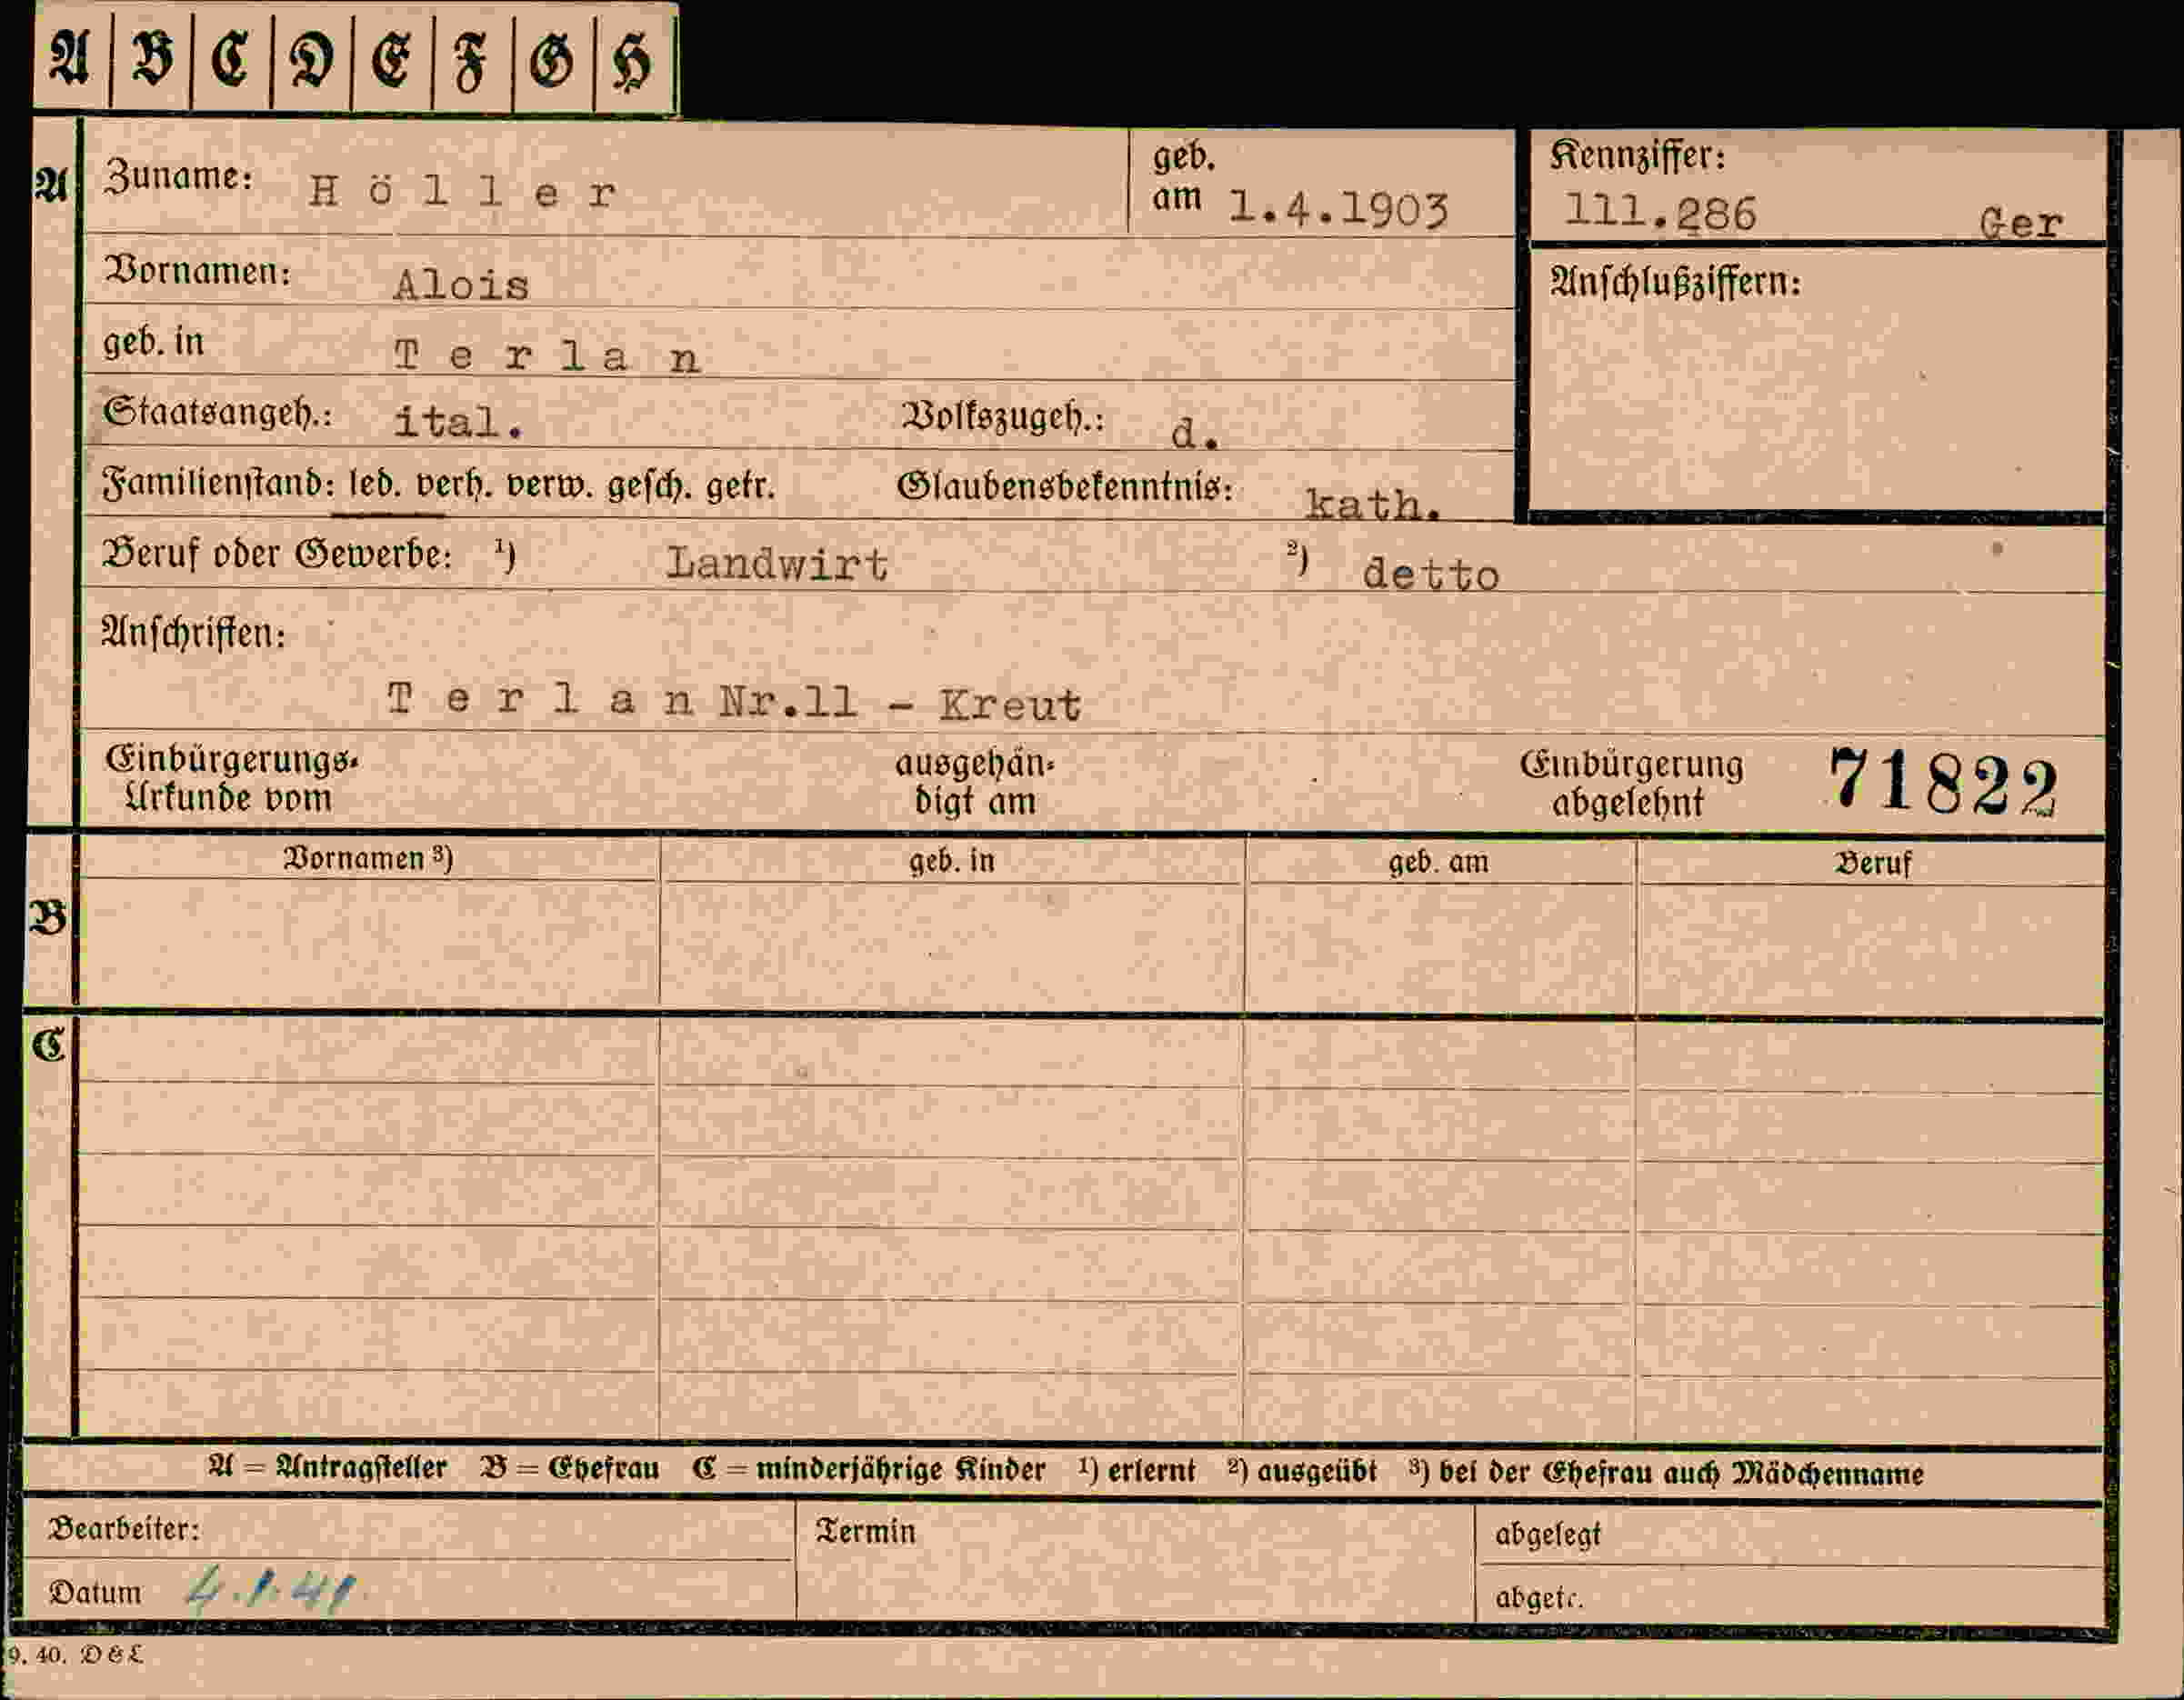 A B C D E F G H
A Zuname: Höller geb. am 1.4.1903 Kennziffer: 111.286 Ger
Vornamen: Alois Anschlußziffern:
geb. in Terlan
Staatsangeh.: ital. Volkszugeh.: d.
Familienstand: led. verh. verw. gesch. getr. Glaubensbekenntnis: kath.
Beruf oder Gewerbe: ¹) Landwirt ²) detto
Anschriften:
Terlan Nr.11 - Kreut
Einbürgerungs- ausgehän- Einbürgerung 71822
Urkunde vom digt am abgelehnt
Vornamen ³) geb. in geb. am Beruf
B
C
A = Antragsteller B = Ehefrau C = minderjährige Kinder ¹) erlernt ²) ausgeübt ³) bei der Ehefrau auch Mädchenname
Bearbeiter: Termin abgelegt
Datum 4.1.41. abgetr.
9. 40. D & L